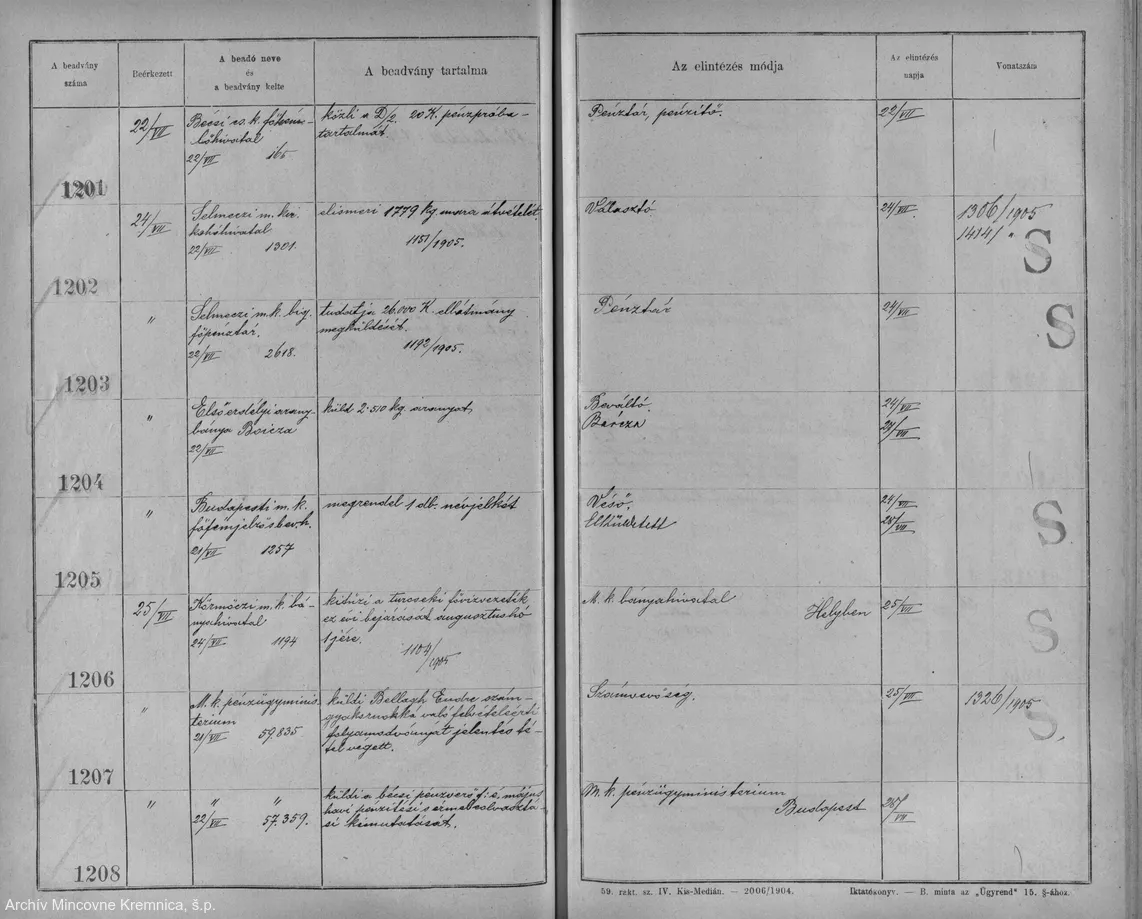 A beadvány
száma
Beérkezett
A beadó neve
és
a beadvány kelte
A beadvány tartalma
Az elintézés módja
Az elintézés
napja
Vonatszám
22/VII
Bécsi cs. k.
22/VII 165.
közli a D/2. 20 K. pénzpróba-
tartalmát
Pénztár, pénzítő.
22/VII
1201
24/VII
Selmeczi m. kir.
kohóhivatal
22/VII 1301.
elismeri 1779 kg. átvételét.
1151/1905.
Választó
24/VII.
1306/1905
1414/ "
S
1202
"
Selmeczi m. k. big.
főpénztár.
22/VII 2618.
tudatja 26.000 K ellátmány
megküldését.
1192/1905.
Pénztár
24/VII
S
1203
"
Első erdélyi arany-
bánya Boicza
22/VII
küld 2·510 kg. aranyat
Beváltó.
24/VII
1204
"
Budapesti m. k.
főfémjelző s bev. h.
21/VII 1257
megrendel 1 db. névjelkét
Véső.
Elküldetett
24/VII
28/VII
S
1205
25/VII
Körmöczi m. k. bá-
nyahivatal
24/VII 1194
kitűzi a turcseki fővízvezeték
ez évi bejárását augusztus hó
1 jére.
1104/1905
M. k. bányahivatal
Helyben
25/VII
S
1206
"
M. k. pénzügyminis
terium
21/VII 59.835
küldi Bellagh Endre szám-
gyakornokká való felvételeért
folyamodványát jelentés té-
tel végett.
Számvevőség.
25/VII
1326/1905
S
1207
"
" "
22/VII 57.359.
küldi a bécsi pénzverő f: é május
havi pénzítési s érmebeolvasztá-
si kimutatását.
M. k. pénzügyministerium
Budapest
28/VII
1208
59. rakt. sz. IV. Kis-Medián. — 2006/1904.
Iktatókönyv. — B. minta az „Ügyrend" 15. §-ához.
Archív Mincovne Kremnica, š.p.